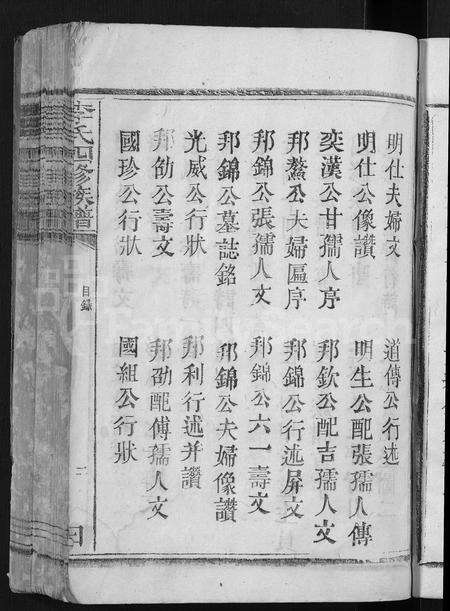 明仕夫婦文 道傳公行述
明仕公像讚 明生公配張孺人傳
奕漢公甘孺人序 邦欽公配吉孺人文
邦鰲公夫婦匾序 邦錦公行述屏文
邦錦公張孺人文 邦錦公六一壽文
邦錦公墓誌銘 邦錦公夫婦像讚
光威公行狀 邦利行述并讚
邦劬公壽文 邦劭配傅孺人文
國珍公行狀 國組公行狀
李氏四修族譜
目錄